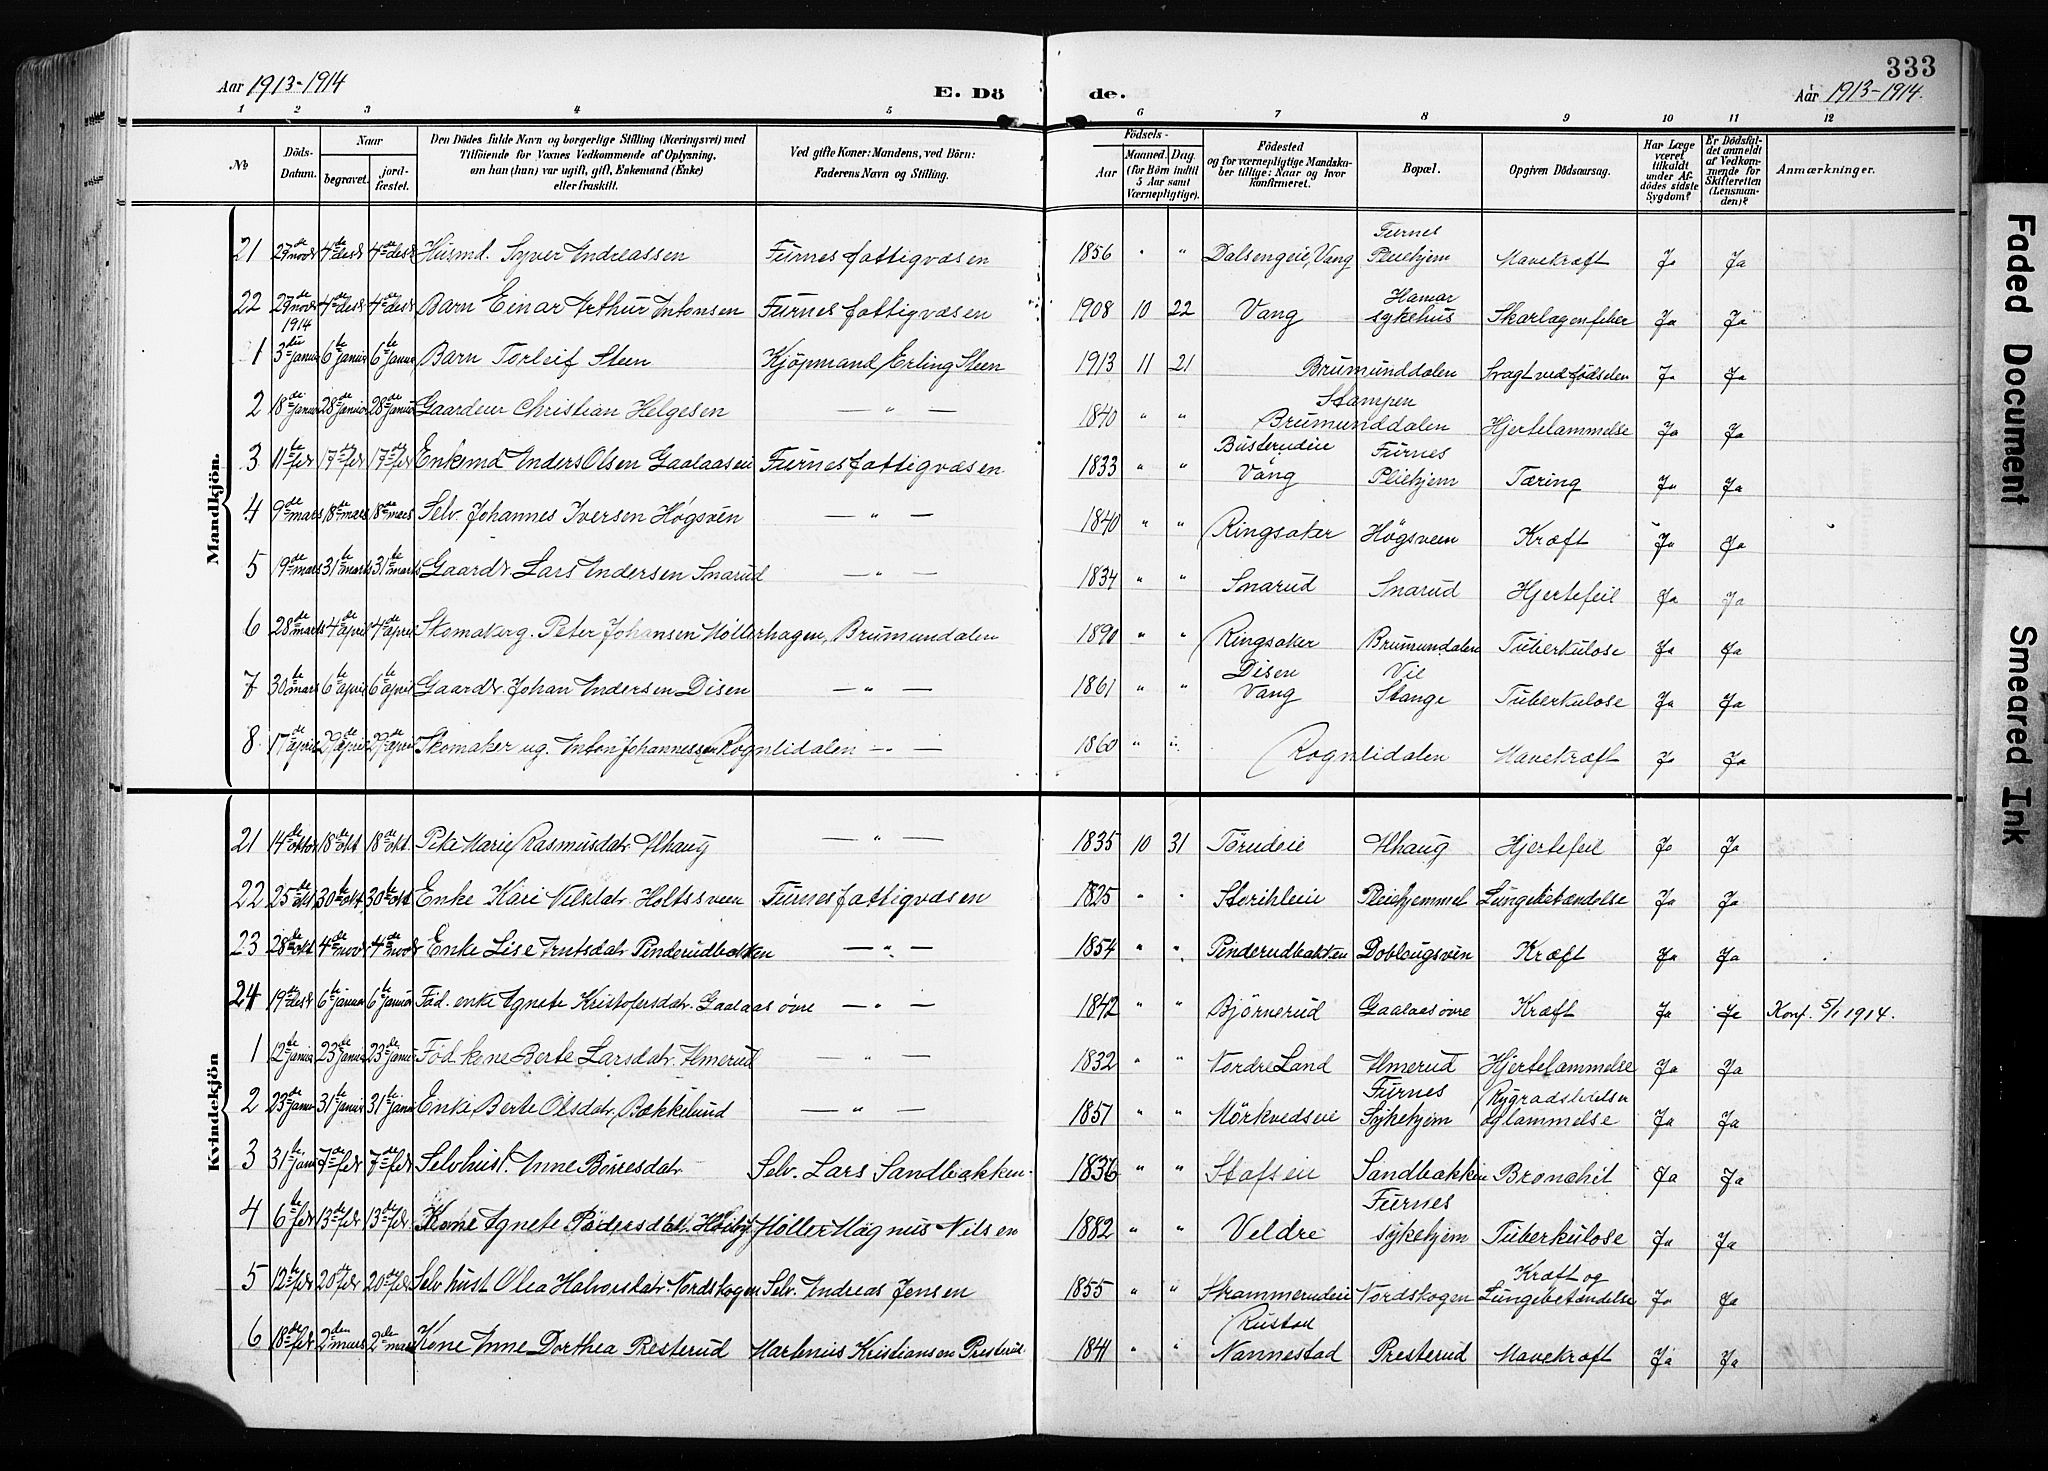 333
Aar 1913-1914
E. Dö
de.
Aar 1913-1914.
1 2 3 4 5 6 7 8 9 10 11 12
№
Döds-Datum.
Naar
begravet.
jord-fæstet.
Den Dödes fulde Navn og borgerlige Stilling (Næringsvei) med
Tilföiende for Voxnes Vedkommende af Oplysning,
om han (hun) var ugift, gift, Enkemand (Enke)
eller fraskilt.
Ved gifte Koner: Mandens, ved Börn:
Faderens Navn og Stilling.
Födsels-
Aar
Maaned. Dag.
(for Börn indtil
5 Aar samt
Værnepligtige).
Födested
og for værnepligtige Mandska-
ber tillige: Naar og hvor
konfirmeret.
Bopæl.
Opgiven Dödsaarsag.
Har Læge
været
tilkaldt
under Af-
dödes sidste
Sygdom?
Er Dödsfal-
det anmeldt
af Vedkom-
mende for
Skifteretten
(Lensman-
den)?
Anmærkninger.
Mandkjön.
21 29de novbr 4de desbr 4de desbr Husmd. Syver Andreassen Furnes fattigvæsen 1856 " " Dalsengeie, Vang Furnes Pleiehjem Mavekræft Ja Ja
22 29de novbr 4de desbr 4de desbr Barn Einar Arthur Antonsen Furnes fattigvæsen 1908 10 22 Vang Hamar sykehus Skarlagenfeber Ja Ja
1914
1 3die januar 6te januar 6te januar Barn Torleif Steen Kjöpmand Erling Steen 1913 11 21 Brumunddalen Svagt ved födselen Ja Ja
2 18de januar 28de januar 28de januar Gaardeier Christian Helgesen — " — 1840 " " Stampen Brumunddalen Hjertelammelse Ja Ja
3 11te febr 17de febr 17de febr Enkemd Anders Olsen Gaalaaseie Furnes fattigvæsen 1833 " " Busterudeie Vang Furnes Pleiehjem Tæring Ja Ja
4 9de mars 18de mars 18de mars Selv. Johannes Iversen Høgsvéen — " — 1840 " " Ringsaker Høgsveen Kræft Ja Ja
5 19de mars 31te mars 31te mars Gaardbr Lars Andersen Snarud — " — 1834 " " Snarud Snarud Hjertefeil Ja Ja
6 28de mars 4de april 4de april Skomakerg. Peter Johansen Møllerhagen, Brumundalen 1890 " " Ringsaker Brumundalen Tuberkulose Ja Ja
7 30te mars 6te april 6te april Gaardbr. Johan Andersen Disen — " — 1861 " " Disen Vang Vil Stange Tuberkulose Ja Ja
8 17de april 29de april 29de april Skomaker ug. Anton Johannessen Rognlidalen — " — 1860 " " Rognlidalen Mavekræft Ja Ja
Kvindekjön
21 14de oktbr 18de okt 18de okt. Pike Marie Rasmusdatr Alhaug — " — 1835 10 31 Törudeie Alhaug Hjertefeil Ja Ja
22 25de okt 30te okt 30te okt Enke Kari Nilsdatr Holtssveen Furnes fattigvæsen 1825 " " Storihleie Pleiehjemmet Lungebetændelse Ja Ja
23 28de okt. 4de novbr 4de novbr Enke Lise Knutsdatr Penderudbakken — " — 1854 " " Penderudbakken Doblougsvén Kræft Ja Ja
24 19de desbr 6te januar 6te januar Föd. enke Agnete Kristofersdatr. Gaalaas övre — " — 1842 " " Björnerud Gaalaas övre Kræft Ja Ja Konf. 5/1 1914.
1 12te januar 23de januar 23de januar Föd. kone Berte Larsdatr. Almerud " — 1832 " " Nordre Land Almerud Hjertelammelse Ja Ja
2 23de januar 31te januar 31te januar Enke Berte Olsdatr. Bækkelund — " — 1851 " " Mörkvedseie Furnes Sykehjem Rygradslidelse og lammelse Ja Ja
3 31te januar 7de febr 7de febr. Selvhust. Anne Børresdatr Selv. Lars Sandbakken 1836 " " Stafseie Sandbakken Bronchit Ja Ja
4 6te febr 13de febr 13de febr. Kone Agnete Pedersdatr. Høiby Møller Magnus Nilsen 1882 " " Veldre Furnes sykehjem Tuberkulose Ja Ja
5 12te febr 20de febr 20de febr Selvhust Olea Halvorsdatr. Nordskogen Selv. Andreas Jensen 1855 " " Skrammerudeie Nordskogen Kræft og Lungebetændelse Ja Ja
6 18de febr 2den mars 2den mars Kone Anne Dorthea Presterud Martenius Kristiansen Presterud 1841 " " Rustad Nannestad Presterud Mavekræft Ja Ja
Faded Document
Smeared Ink